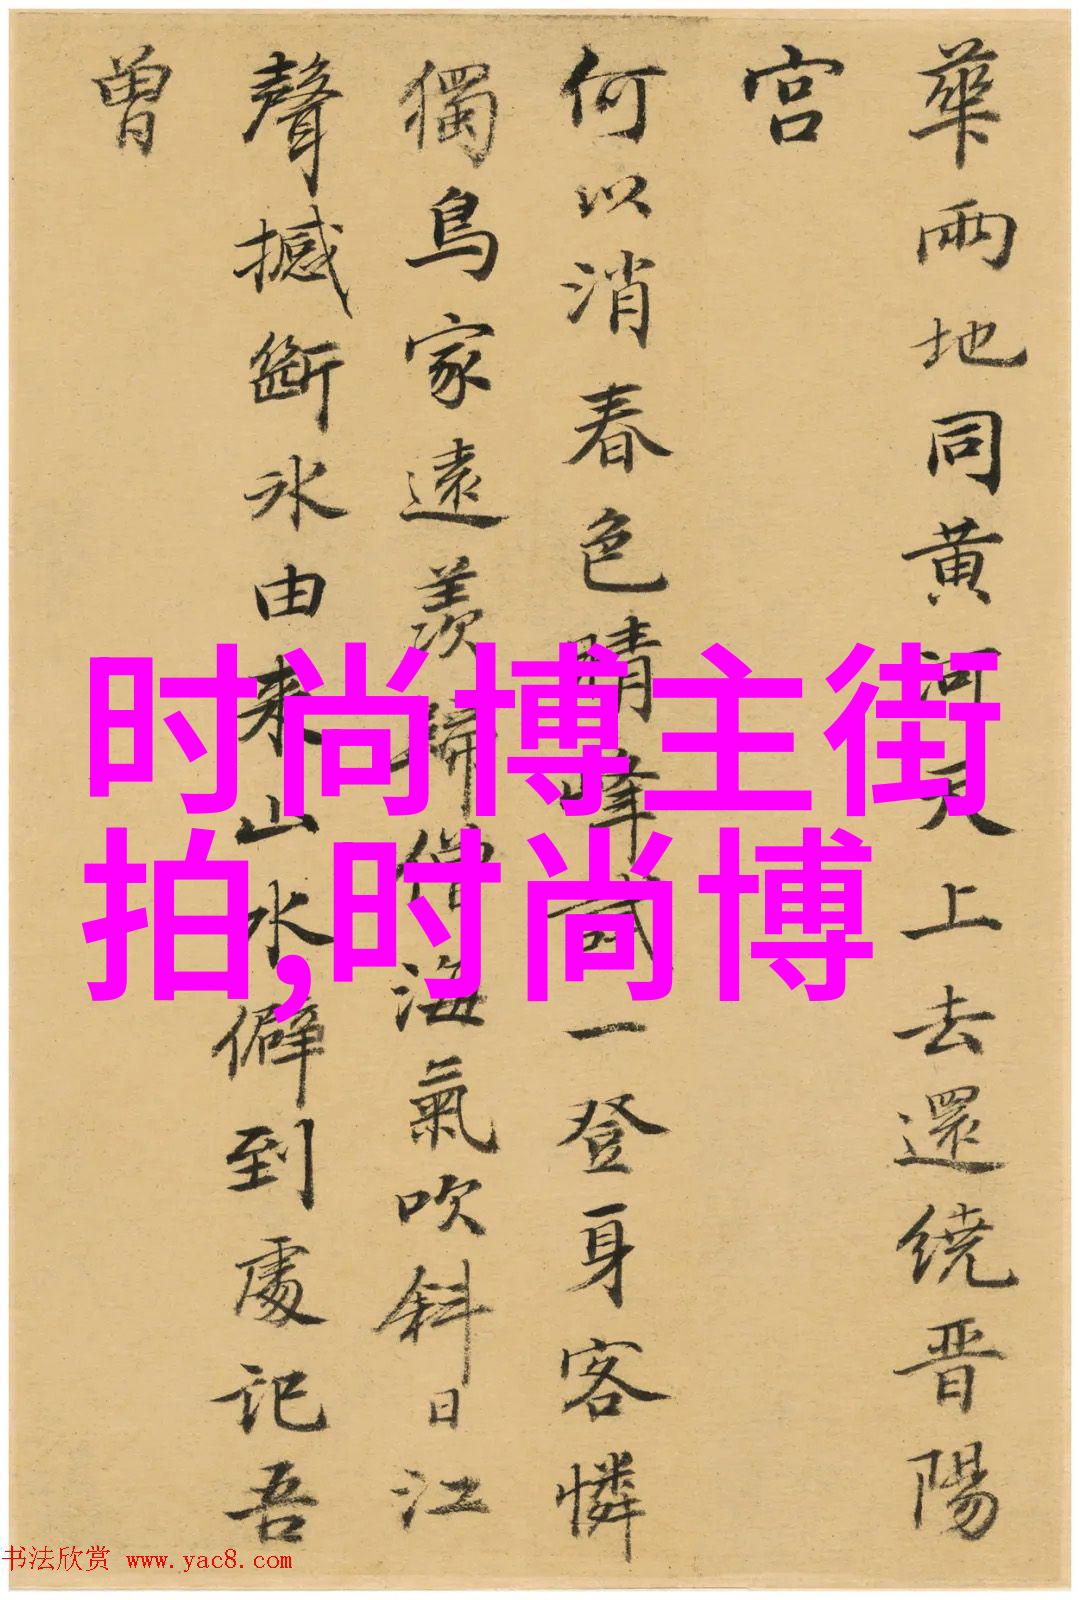 華兩地同黄河天上去還繞晋陽
宫
何以消春色晴峰試一登身客憐
獨鳥家遠羨歸僧海氣吹斜日江
聲撼斷冰由来山水僻到處記吾
曾
时尚博主街
拍,时尚博
书法欣赏 www.yac8.com